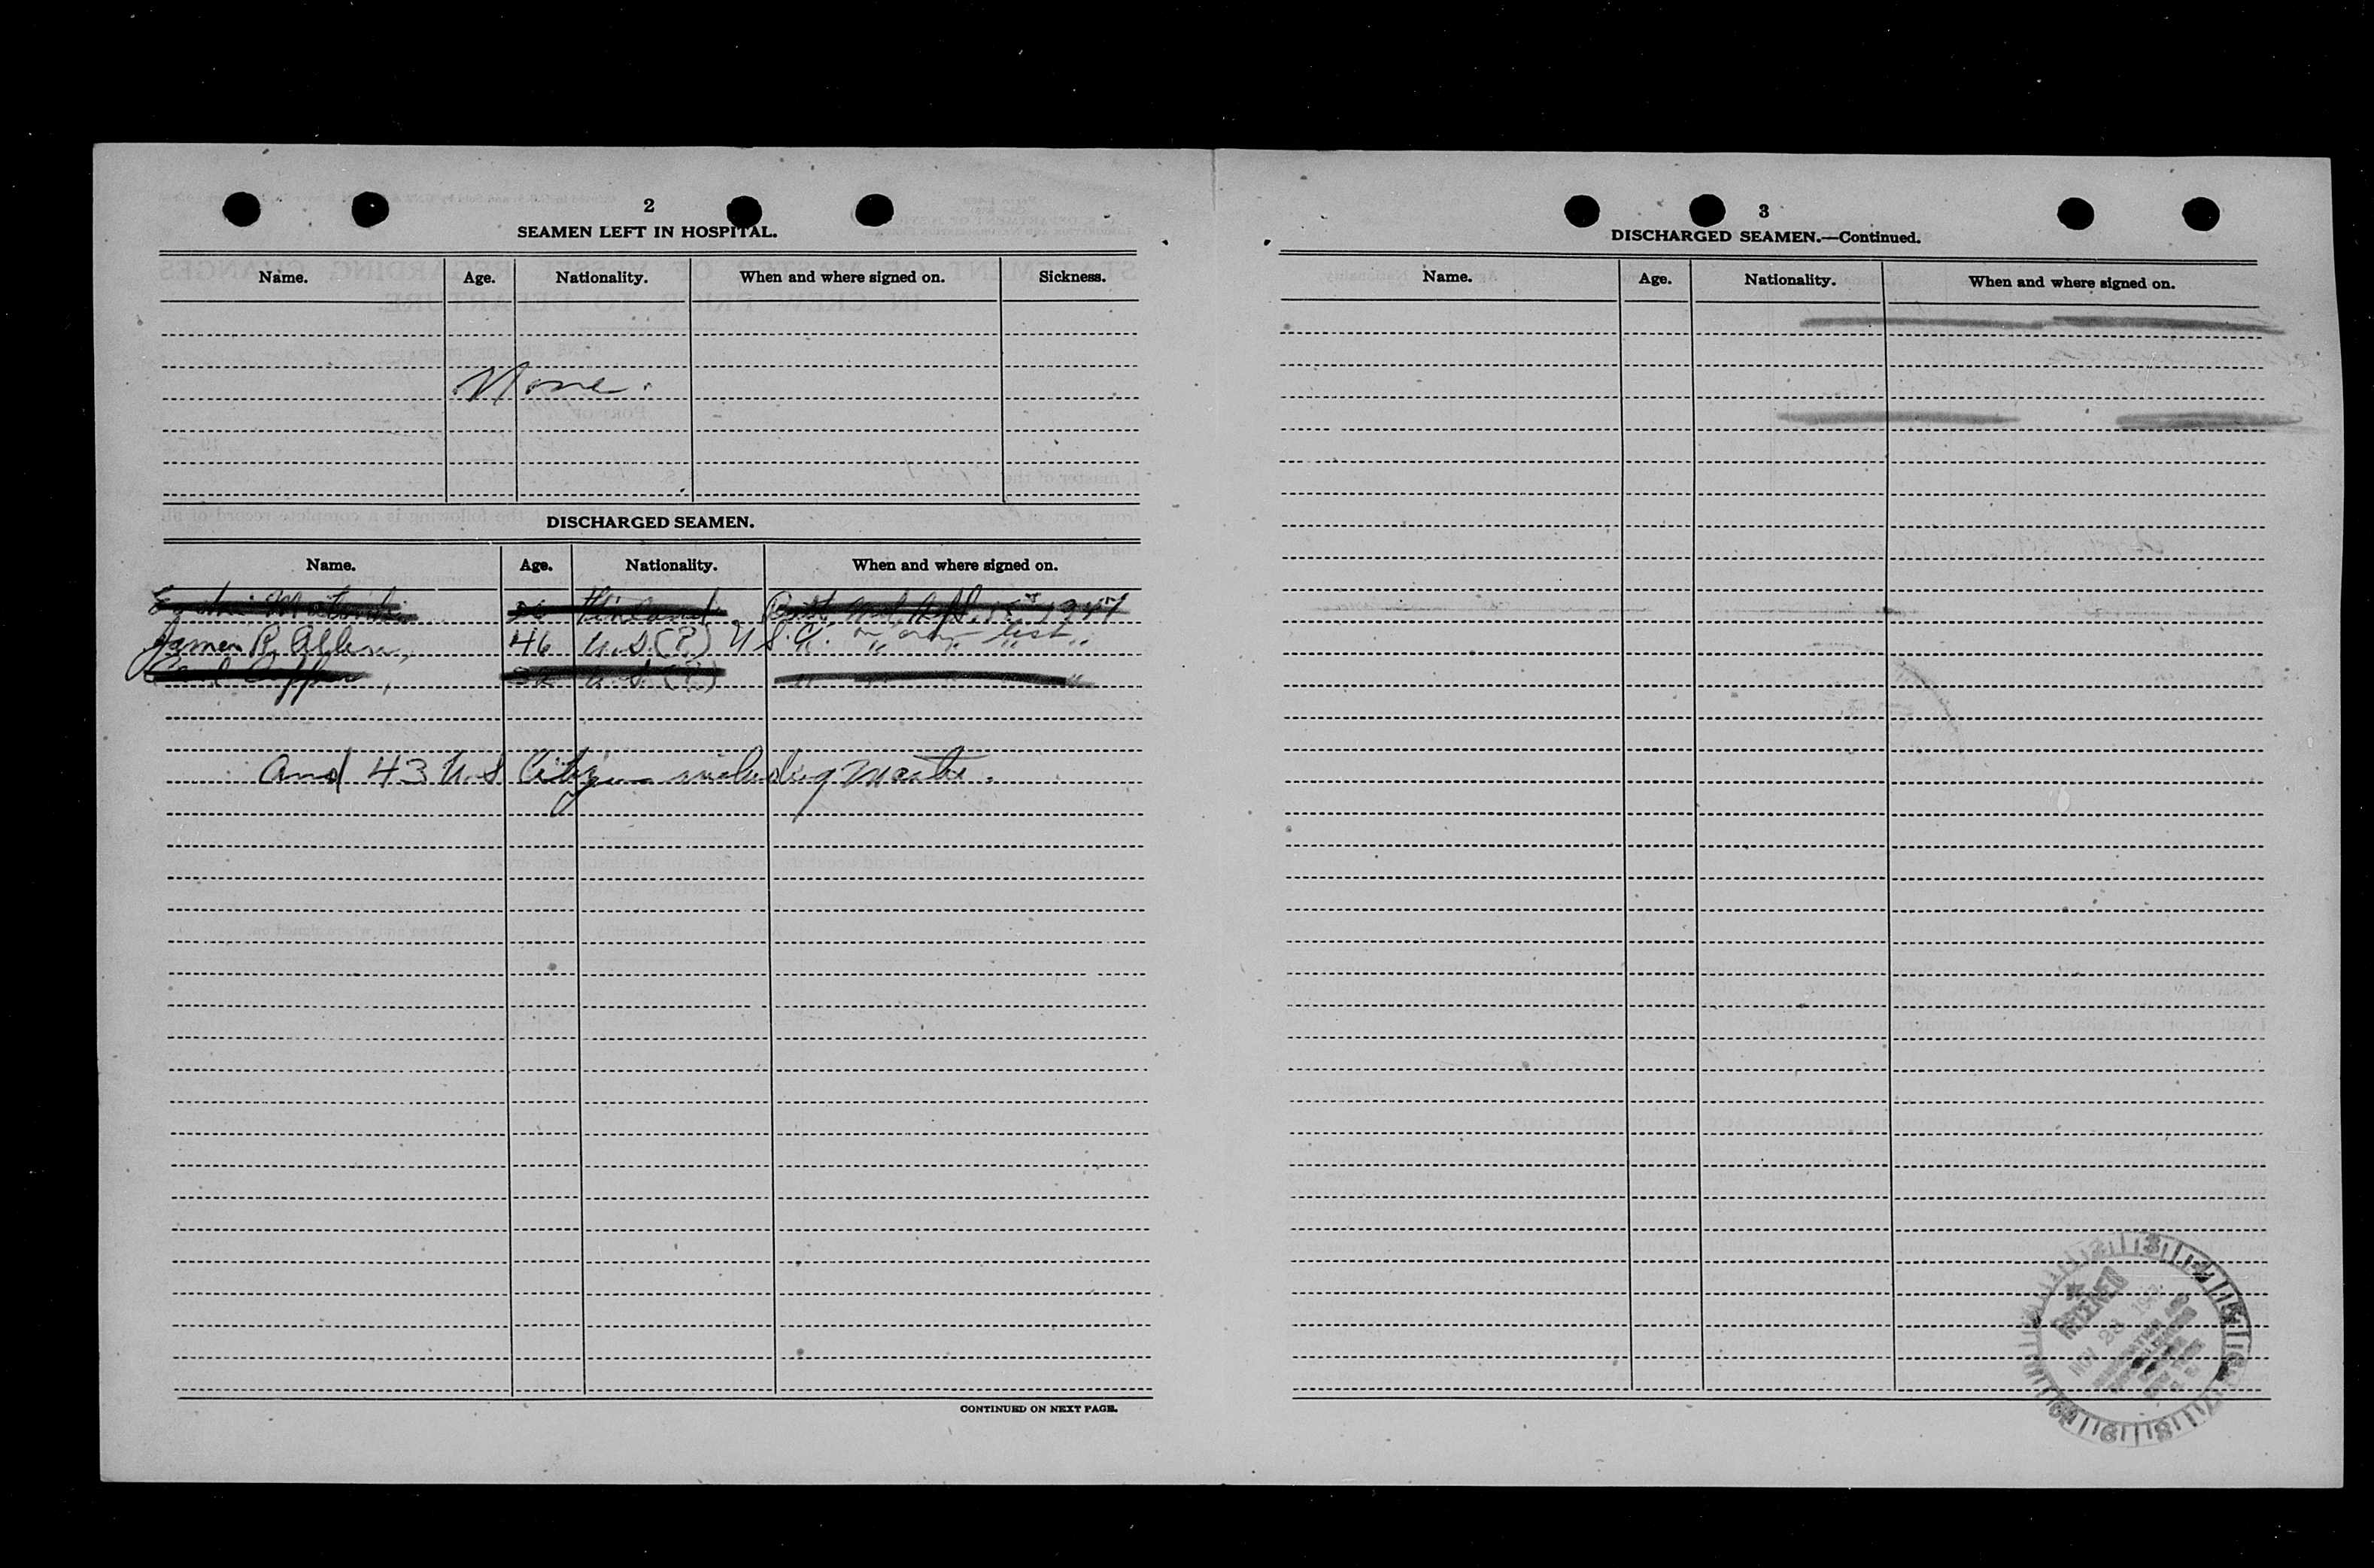 2
SEAMEN LEFT IN HOSPITAL.
Name. Age. Nationality. When and where signed on. Sickness.
None.
DISCHARGED SEAMEN.
Name. Age. Nationality. When and where signed on.
Finland
James R. Allen, 46 U.S.(?) U.S.C. on crew list
U.S.(?) " "
and 43 U.S Citizens including Master.
CONTINUED ON NEXT PAGE.
3
DISCHARGED SEAMEN.—Continued.
Name. Age. Nationality. When and where signed on.
RECEIVED
NOV 23